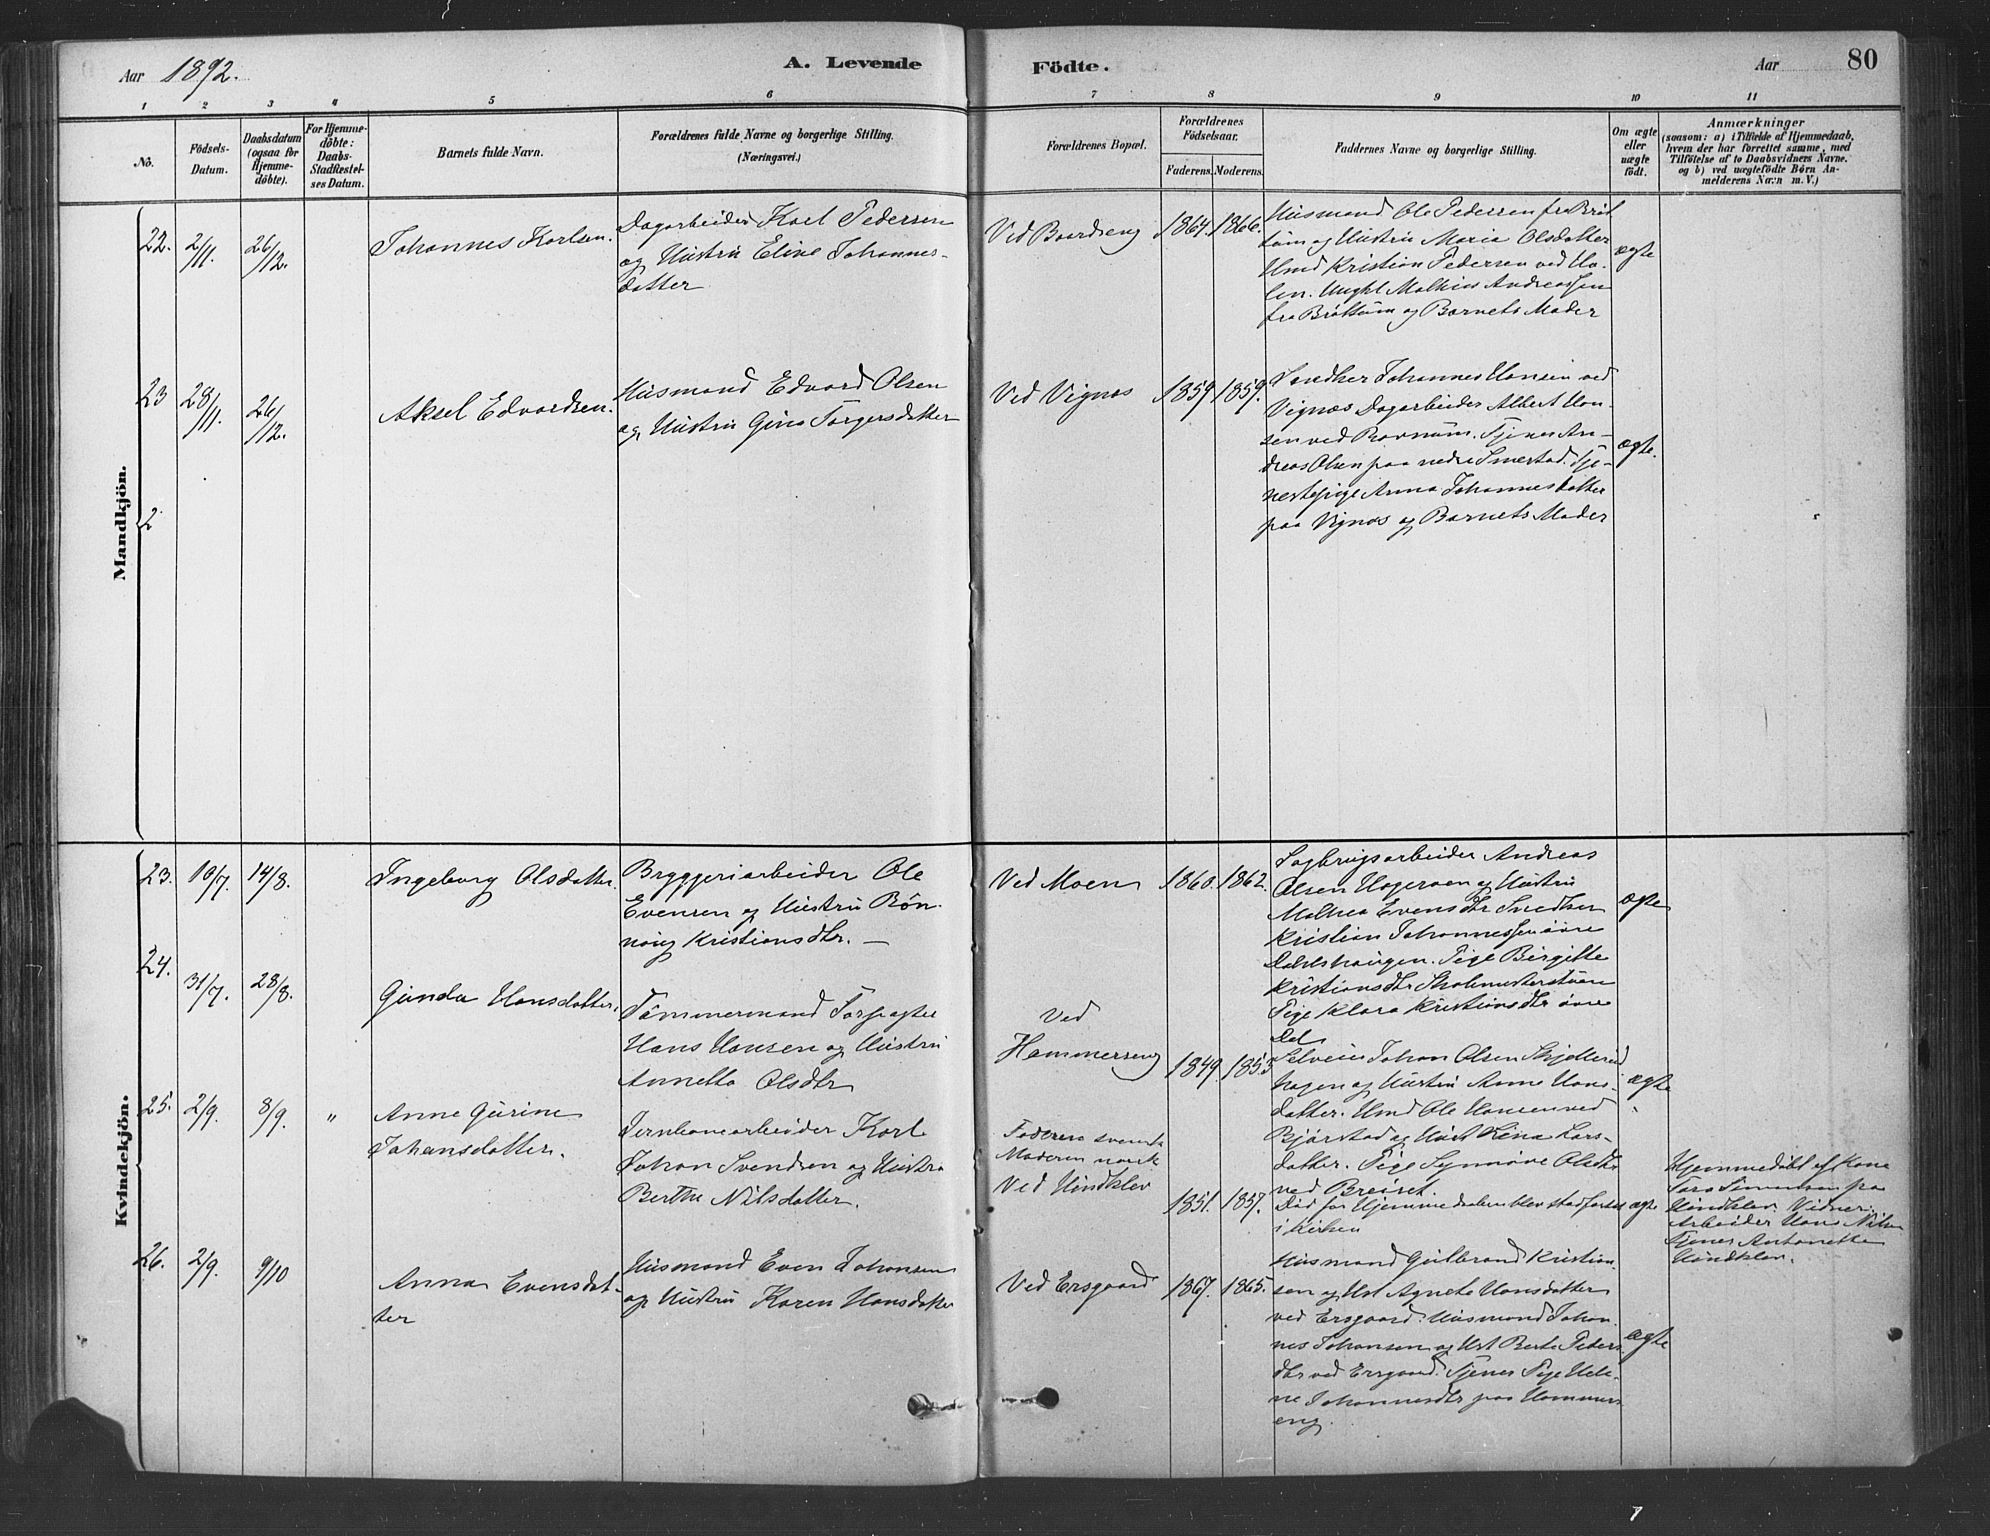 Aar 1892.
A. Levende
Födte.
Aar
80
1 2 3 4 5 6 7 8 9 10 11
No.
Födsels-
Datum.
Daabsdatum
(ogsaa for
Hjemme-
döbte).
For Hjemme-
döbte:
Daabs-
Stadfæstel-
ses Datum.
Barnets fulde Navn.
Forældrenes fulde Navne og borgerlige Stilling.
(Næringsvei.)
Forældrenes Bopæl.
Forældrenes
Födselsaar.
Faderens.
Moderens.
Faddernes Navne og borgerlige Stilling.
Om ægte
eller
uægte
födt.
Anmærkninger
(saasom: a) i Tilfælde af Hjemmedaab,
hvem der har forrettet samme, med
Tilföielse af to Daabsvidners Navne.
og b) ved uægtefödte Börn An-
melderens Navn m. V.)
Mandkjön.
22. 2/11 26/12. Johannes Karlsen.
Dagarbeider Karl Pedersen
og Hustru Eline Johannes-
datter
Ved Baardseng 1864. 1866.
Husmand Ole Pedersen fra Bröt
tum og Hustru Maria Olsdatter
Hmd Kristian Pedersen ved Ho-
len. Ungkl Mathias Andreassen
fra Bröttum og Barnets Moder
ægte
23 28/11 26/12. Aksel Edvardsen.
Husmand Edvard Olsen
og Hustru Gina Torgersdatter
Ved Vignæs 1859 1859.
Snedker Johannes Hansen ved
Vignæs Dagarbeider Albert Han-
sen ved Ravnum. Tjener An-
dreas Olsen paa nedre Smestad. Tje-
nestepige Anna Johannesdatter
paa Vignæs og Barnets Moder
ægte.
2
Kvindekjön.
23. 10/7. 14/8. Ingeborg Olsdatter.
Bryggeriarbeider Ole
Evensen og Hustru Rön-
naug Kristiansdtr. —
Ved Moen 1860. 1862.
Sagbrugsarbeider Andreas
Olsen Hageroen og Hustru
Mathea Evensdtr Snedker
Kristian Johannessen övre
Dahlshaugen. Pige Birgitte
Kristiansdtr Skolmesterstuen
Pige Klara Kristiansdtr övre
Dal
ægte
24. 31/7. 28/8. Gunda Hansdatter.
Tömmermand Forpagter
Hans Hansen og Hustru
Annetta Olsdtr
Ved
Hammerseng 1849. 1853
Selveier Johan Olsen Skjellerud
hagen og Hustru Anne Hans-
datter. Hmd Ole Hansen ved
Björstad og Hust Lena Lars-
datter. Pige Synnöve Olsdtr
ved Breiset.
ægte
25. 2/9. 8/9. " Anne Gurine
Johansdatter.
Jernbanearbeider Karl
Johan Svendsen og Hustru
Berthe Nilsdatter.
Faderen svensk
Moderen norsk
Ved Hindklev
1851. 1857.
Död för Hjemmedaaben blev stadfæstet
i Kirken
ægte
Hjemmedöbt af Kone
Simensen paa
Hindklev. Vidner:
Arbeider Hans Nilsen
Tjener Antonette
Hindklev.
26. 2/9. 9/10 Anna Evensdat-
ter
Husmand Even Johansen
og Hustru Karen Hansdatter
Ved Ersgaard 1867. 1865.
Husmand Gulbrand Kristian-
sen og Hst Agnete Hansdatter
ved Ersgaard. Husmand Johan-
nes Johansen og Hst Berte Peders
dtr ved Ersgaard. Tjener Pige Hele-
ne Johannesdtr paa Hammers
eng.
ægte